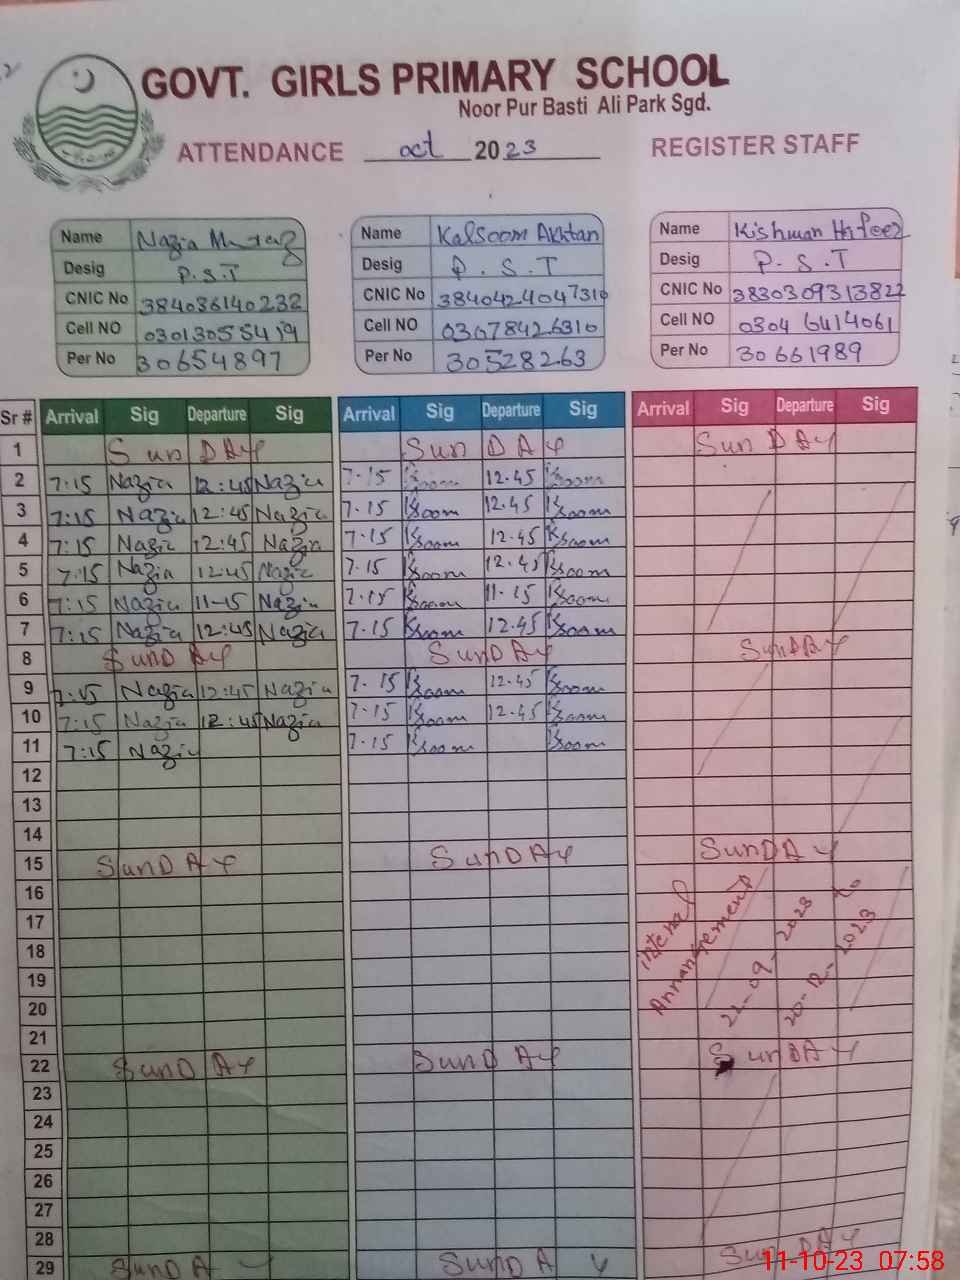 GOVT. GIRLS PRIMARY SCHOOL
Noor Pur Basti Ali Park Sgd.
ATTENDANCE oct 2023 REGISTER STAFF
Name Nazia Name Kalsoom Akhtar Name Kishwar Hafeez
Desig P.S.T Desig P.S.T Desig P.S.T
CNIC No 384036140232 CNIC No 3840424047310 CNIC No 3830309313822
Cell NO 03013055419 Cell NO 03078426310 Cell NO 0304 6414061
Per No 30654897 Per No 30528263 Per No 30661989
Sr # Arrival Sig Departure Sig Arrival Sig Departure Sig Arrival Sig Departure Sig
1 SunDAy SunDAy SunDAy
2 7:15 Nazia 12:45 Nazia 7.15 Ksoom 12.45 Ksoom
3 7:15 Nazia 12:45 Nazia 7.15 Ksoom 12.45 Ksoom
4 7:15 Nazia 12:45 Nazia 7.15 Ksoom 12.45 Ksoom
5 7:15 Nazia 12:45 Nazia 7.15 Ksoom 12.45 Ksoom
6 7:15 Nazia 11-15 Nazia 7.15 Ksoom 11.15 Ksoom
7 7:15 Nazia 12:45 Nazia 7.15 Ksoom 12.45 Ksoom
8 SunDAy SunDAy SunDAy
9 7:15 Nazia 12:45 Nazia 7.15 Ksoom 12.45 Ksoom
10 7:15 Nazia 12:45 Nazia 7.15 Ksoom 12.45 Ksoom
11 7:15 Nazia 7.15 Ksoom Ksoom
12
13
14
15 SunDAy SunDAy SunDAy
16
17
18
19
20
21
Internal
Arrangement
22-09-2023 to
20-12-2023
22 SunDAy SunDAy SunDAy
23
24
25
26
27
28
29 SunDAy SunDAy SunDAy
11-10-23 07:58